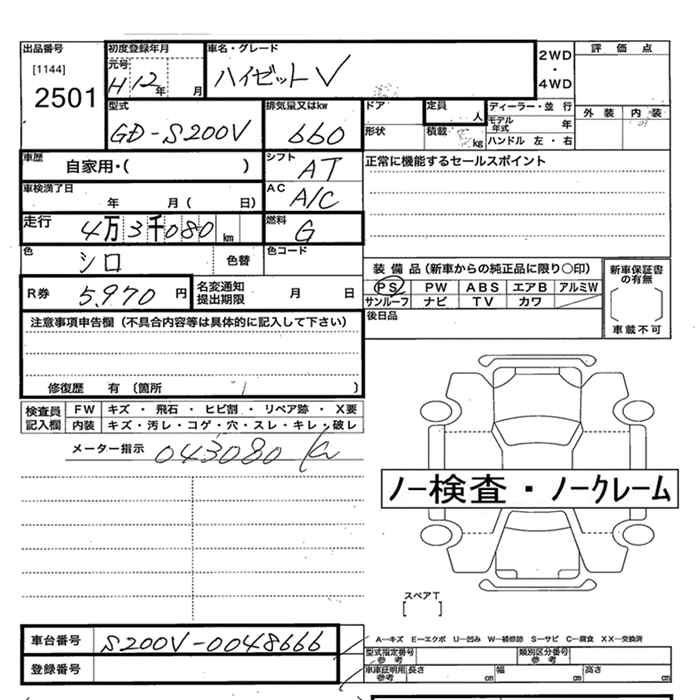 出品番号 初度登録年月 車名・グレード 2WD・4WD 評価点
[1144] 元号 H12年 月 ハイゼットV
2501 外装 内装
型式 排気量又はkw ドア 定員 人 ディーラー・並行
GD-S200V 660 形状 積載 kg モデル年式 年
ハンドル 左・右
車歴 自家用・( ) シフト AT 正常に機能するセールスポイント
車検満了日 年 月( 日) AC A/C
走行 4万3千080km 燃料 G
色 シロ 色替 色コード
装備品(新車からの純正品に限り〇印) 新車保証書の有無
R券 5,970円 名変通知提出期限 月 日 PS PW ABS エアB アルミW
サンルーフ ナビ TV カワ 車載不可
注意事項申告欄(不具合内容等は具体的に記入して下さい) 後日品
修復歴 有(箇所 )
検査員記入欄 FW キズ・飛石・ヒビ割・リペア跡・X要
内装 キズ・汚レ・コゲ・穴・スレ・キレ・破レ
メーター指示 043080 km
ノー検査・ノークレーム
スペアT
[ ]
車台番号 S200V-0048666 A—キズ E—エクボ U—凹み W—補修跡 S—サビ C—腐食 XX—交換済
登録番号 型式指定番号 参考 類別区分番号 参考
車庫証明用 参考 長さ cm 幅 cm 高さ cm